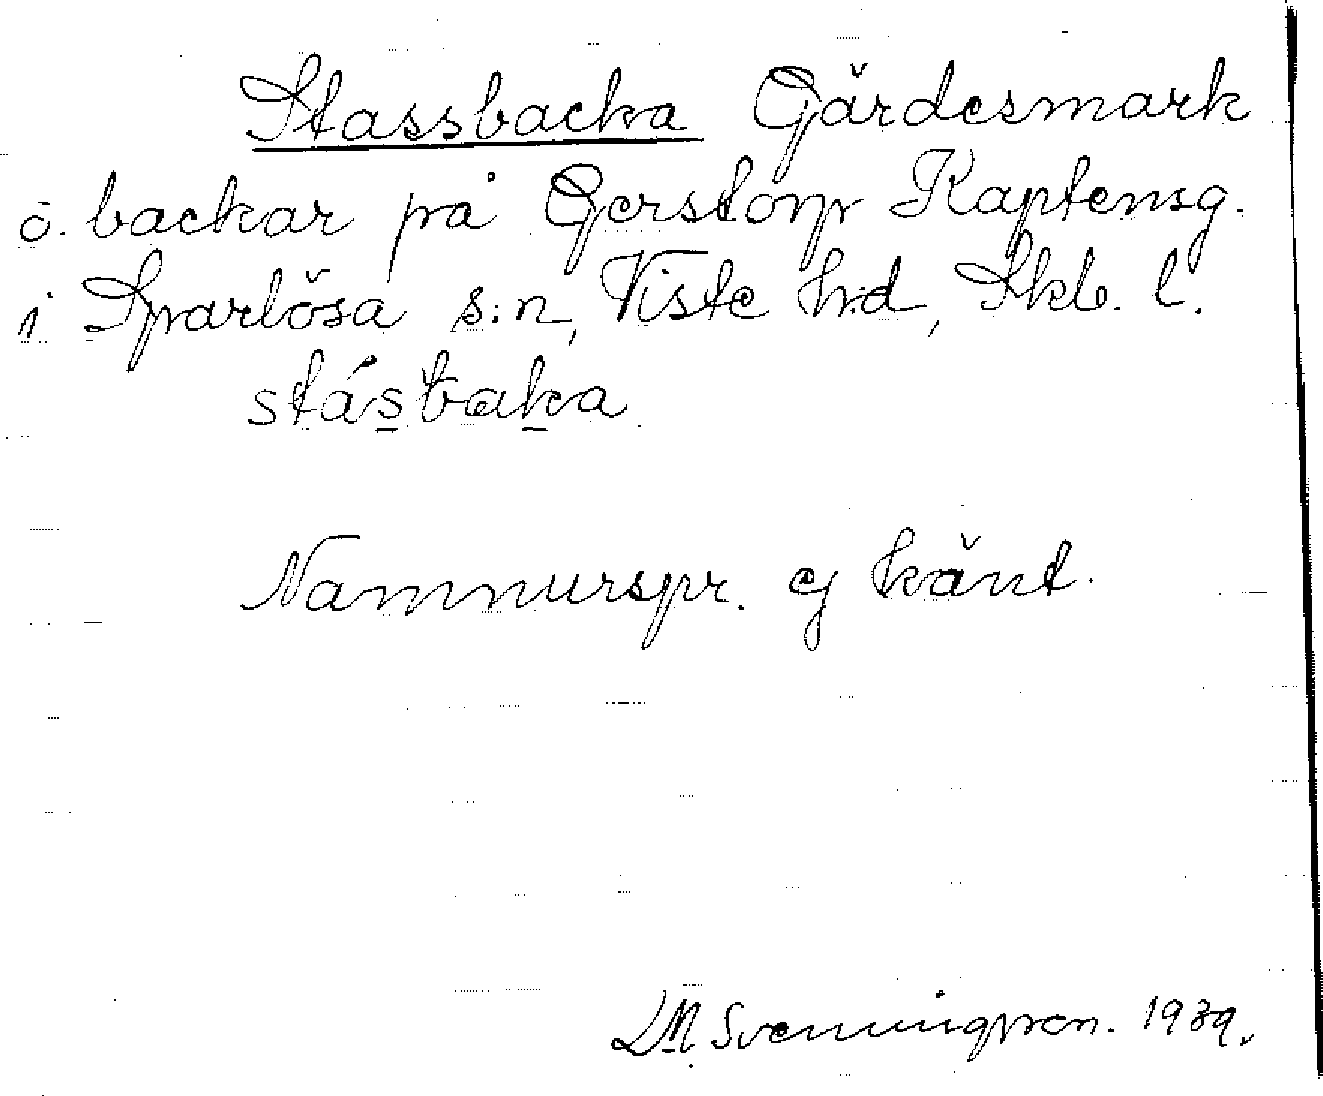 Stassbacka Gärdesmark
o. backar på Gerstorp Kaptensg.
i Sparlösa s:n, Viste hd, Skb. l.
stásbaka
Namnurspr. ej känt.
D.N. Svenningsson. 1939.